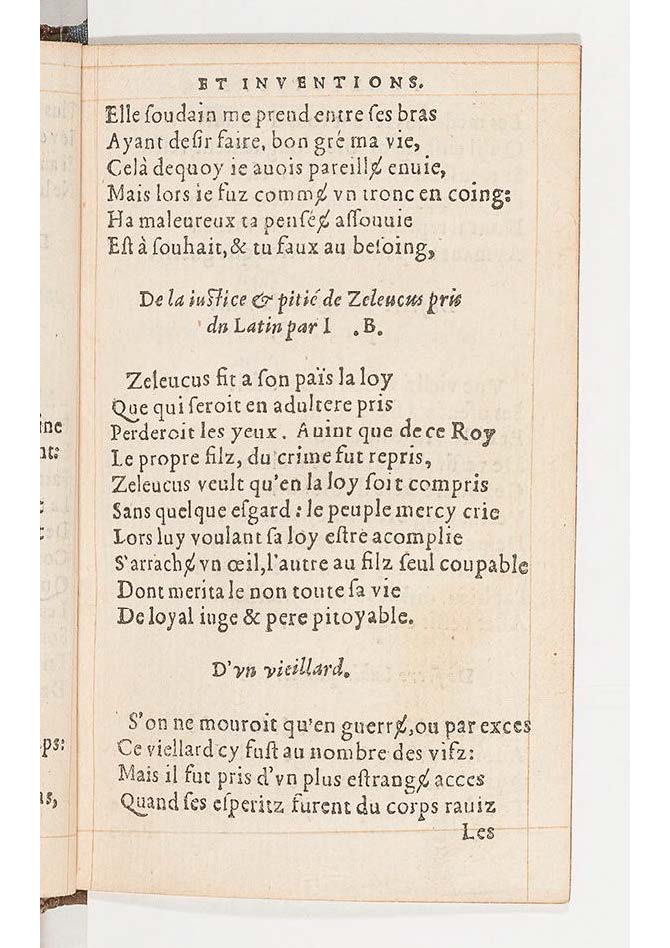 ET INVENTIONS.
Elle ſoudain me prend entre ſes bras
Ayant deſir faire, bon gré ma vie,
Celà dequoy ie auois pareillɇ enuie,
Mais lors ie fuz commɇ vn tronc en coing:
Ha maleureux ta penséɇ aſſouuie
Eſt à ſouhait, & tu faux au beſoing,
De la iuſtice & pitié de Zeleucus pris
dn Latin par I .B.
Zeleucus fit a ſon païs la loy
Que qui ſeroit en adultere pris
Perderoit les yeux. Auint que de ce Roy
Le propre filz, du crime fut repris,
Zeleucus veult qu'en la loy ſoit compris
Sans quelque eſgard: le peuple mercy crie
Lors luy voulant ſa loy eſtre acomplie
S'arrachɇ vn œil, l'autre au filz ſeul coupable
Dont merita le non toute ſa vie
De loyal iuge & pere pitoyable.
D'vn vieillard.
S'on ne mouroit qu'en guerrɇ, ou par exces
Ce viellard cy fuſt au nombre des vifz:
Mais il fut pris d'vn plus eſtrangɇ acces
Quand ſes eſperitz furent du corps rauiz
Les